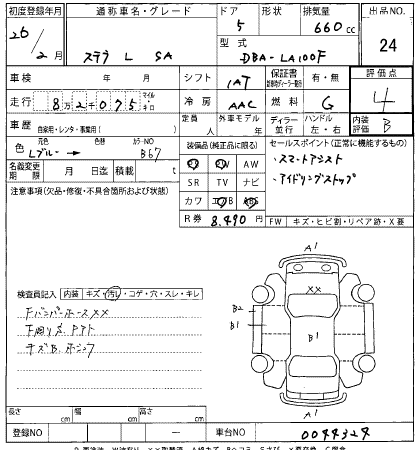 初度登録年月 通称車名・グレード ドア 形状 排気量 出品NO.
26/2月 ステラ L SA 5 660cc 24
型式 DBA-LA100F
車検 年 月 シフト IAT 保証書 有・無 評価点
走行 8万2千075 マイル・キロ 冷房 AAC 燃料 G 4
車歴 自家用・レンタ・事業用( ) 定員 人 外車モデル 年 ディーラー・並行 ハンドル 左・右 内装評価 B
色 元色 Lブルー → 色替 カラーNO B67
装備品(純正品に限る) セールスポイント(正常に機能するもの)
名義変更期限 月 日迄 積載 t
PS PW AW
SR TV ナビ
カワ エアB ABS
・スマートアシスト
・アイドリングストップ
R券 8,490円
注意事項(欠品・修復・不具合箇所および状態)
FW キズ・ヒビ割・リペア跡・X要
A1
XX
B2
B1
B1
A1
検査員記入 内装 キズ・汚れ・コゲ・穴・スレ・キレ
FバンパーホースXX
下廻り
キズB
長さ cm 幅 cm 高さ cm
登録NO ー 車台NO 0044324